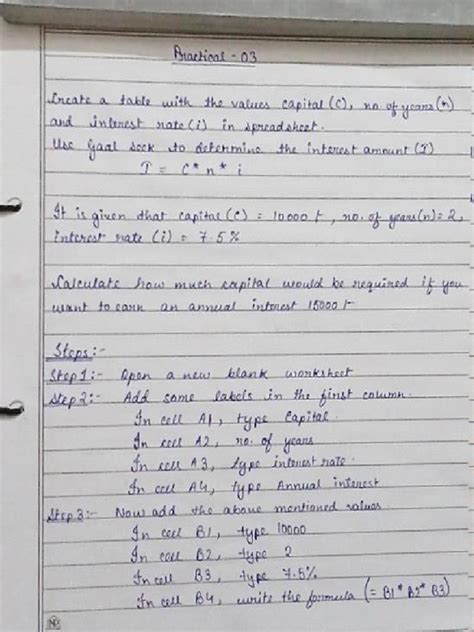 Practical - 03
Create a table with the values capital (C), no of years (n)
and interest rate (i) in spreadsheet.
Use Goal seek to determine the interest amount (I)
I = C * n * i
It is given that capital (C) = 10000 /-, no. of years (n) = 2,
interest rate (i) = 7.5%
Calculate how much capital would be required if you
want to earn an annual interest 15000 /-
Steps :-
Step 1:- Open a new blank worksheet
Step 2:- Add some labels in the first column.
In cell A1, type Capital.
In cell A2, no. of years
In cell A3, type interest rate.
In cell A4, type Annual interest
Step 3:- Now add the above mentioned values
In cell B1, type 10000
In cell B2, type 2
In cell B3, type 7.5%
In cell B4, write the formula (= B1* B2* B3)